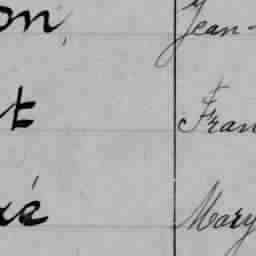 on, Jean-
t Fran
é Mary